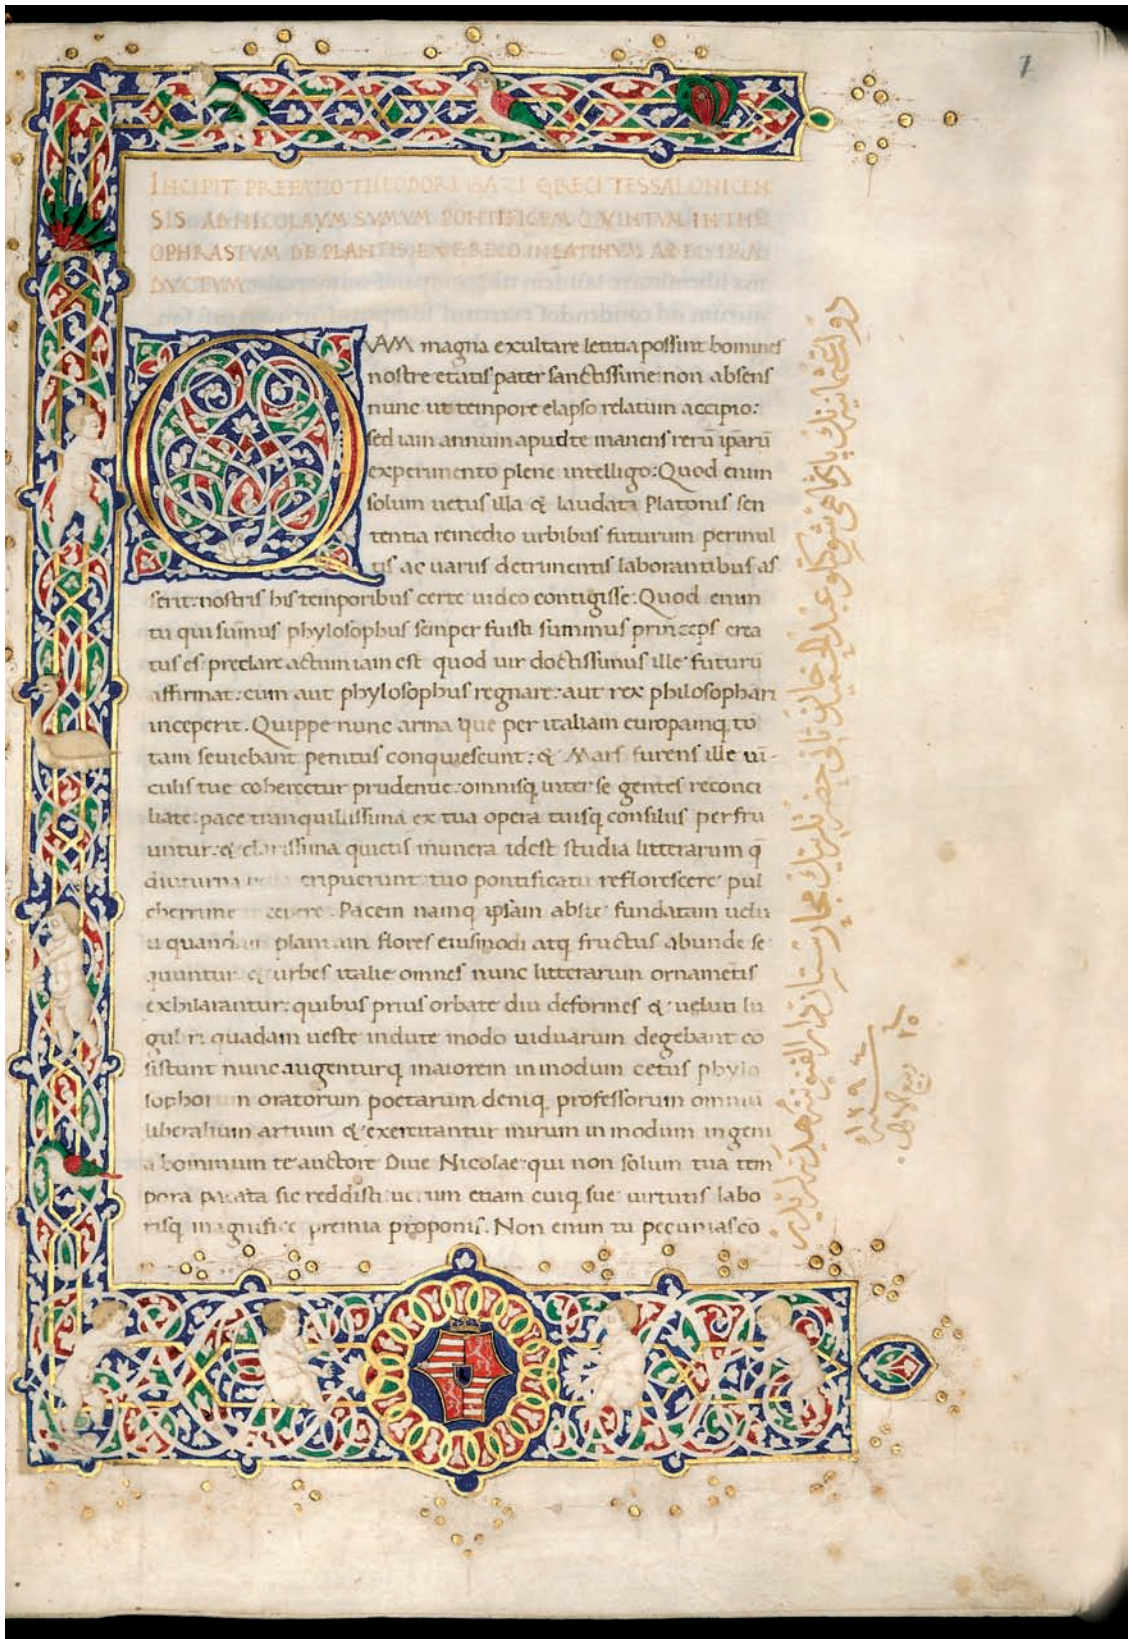 7
INCIPIT PREFATIO THEODORI GRECI TESSALONICEN
SIS AD NICOLAVM SVMVM PONTIFICEM QVINTVM IN THE
OPHRASTVM DE PLANTIS, EX GRECO IN LATINVM
DVCTVM
QVAM magna exultare letitia possint homines
nostre etatis pater sanctissime: non absens
nunc ut tempore elapso relatum accipio:
sed iam annum apud te manens rerū ip̄arū
experimento plene intelligo: Quod enim
solum uetus illa & laudata Platonis sen
tentia remedio urbibus futurum permul
tis ac uariis detrimentis laborantibus as
serit: nostris his temporibus certe uideo contigisse: Quod enim
tu qui sūmus phylosophus semper fuisti summus princeps crea
tus es preclare actum iam est quod uir doctissimus ille futurū
affirmat: cum aut phylosophus regnare: aut rex philosophari
inceperit. Quippe nunc arma que per italiam europamq̨ to
tam seuiebant penitus conquiescunt: & Mars furens ille uī-
culis tue cohercetur prudentie: omnisq̨ inter se gentes reconci
liate: pace tranquilissima ex tua opera tuisq̨ consiliis perfru
untur: & clarissima quietis munera idest studia litterarum q̄
diuturna eripuerunt tuo pontificatu reflorescere pul
cherrime cepere. Pacem namq̨ ipsam abs te fundatam uelu
ti quandam plantam flores eiusmodi atq̨ fructus abunde se
quuntur: & urbes italie omnes nunc litterarum ornamētis
exhilarantur: quibus prius orbate diu deformes & ueluti lu
gubri quadam ueste indute modo uiduarum degebant cō
sistunt nunc augenturq̨ maiorem in modum cetus phylo
sophorum oratorum poetarum deniq̨ professorum omniū
liberalium artium & exercitantur mirum in modum ingeni
a hominum te auctore Diue Nicolae: qui non solum tua tem
pora pacata sic reddisti: uerum etiam cuiq̨ sue uirtutis labo
risq̨ magnifice premia proponis. Non enim tu pecunias cō